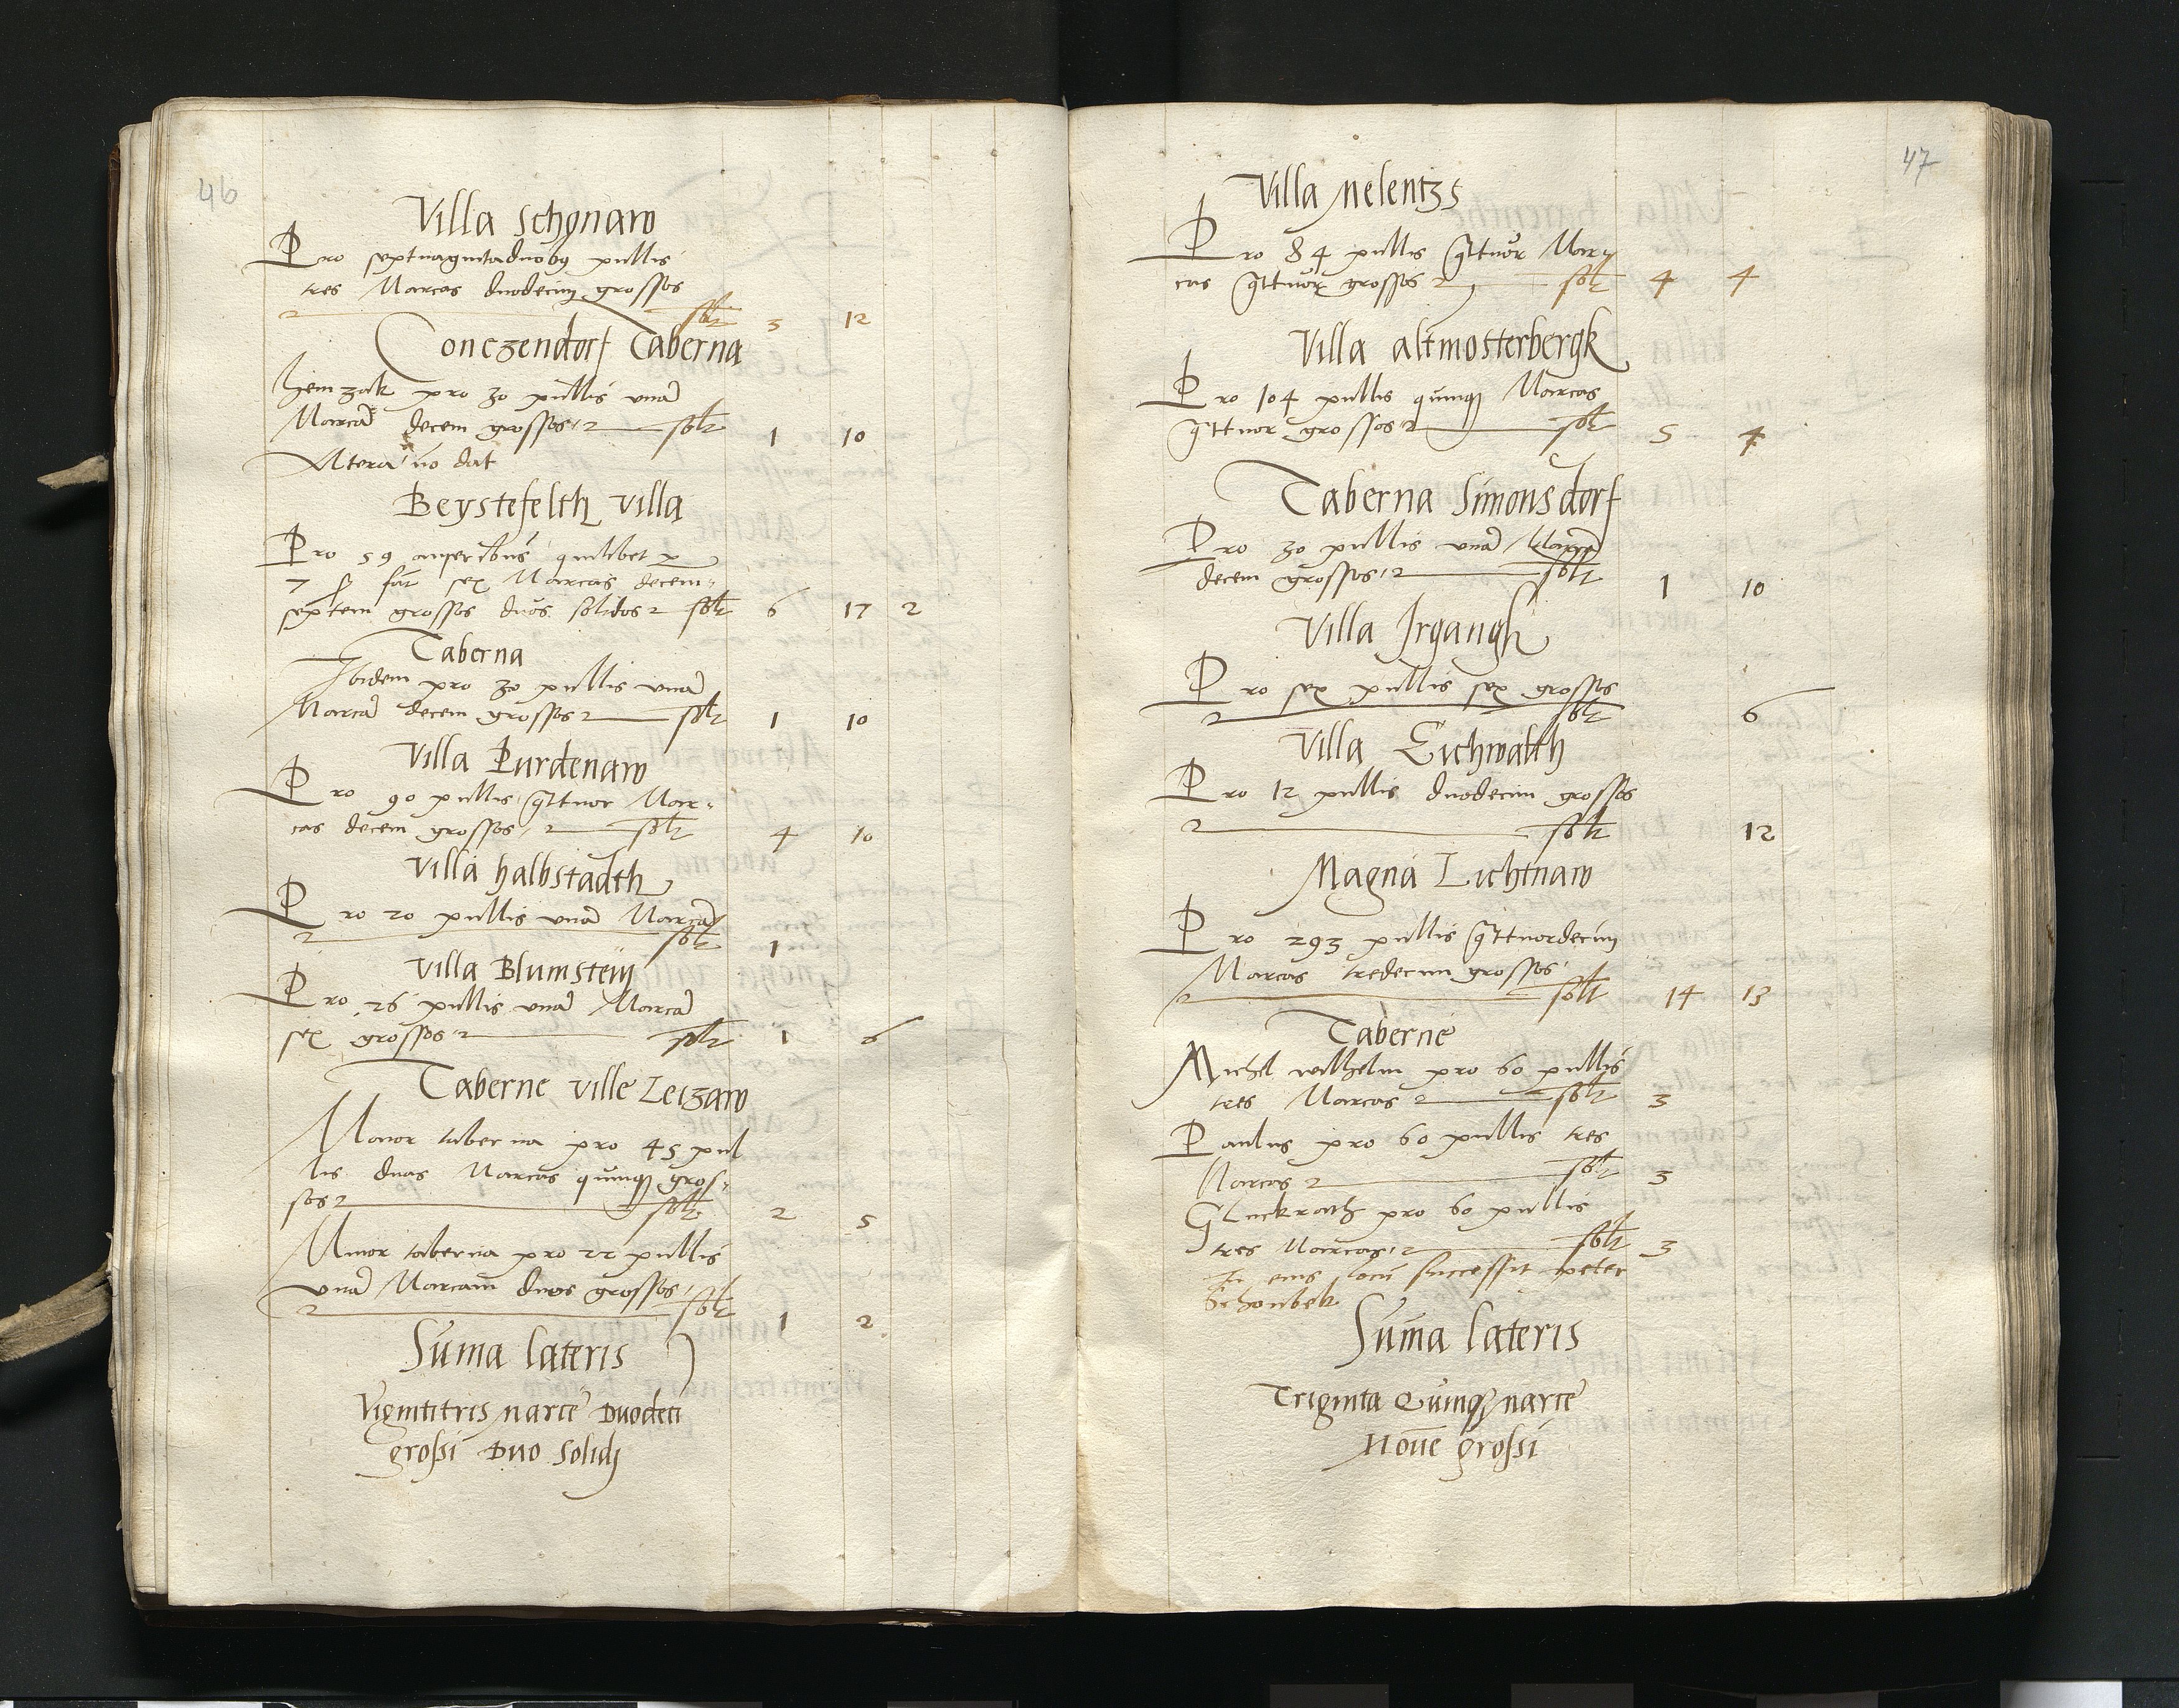 46
Villa Schonaw
Pro septuagintaduobꝫ pullis
tres Marcas duodecim grossos
solt 3 12
Conczendorf Taberna
hemzak pro 30 pullis vnā
Marcā decem grossos solt 1 10
Altera nō dat
Beystefelth villa
Pro 59 anseribus quilibet p
7 ß fat̄ sex Marcas decem
septem grossos duos solidos solt 6 17 2
Taberna
Ibidem pro 30 pullis vnā
Marcā decem grossos solt 1 10
Villa Purdenaw
Pro 90 pullis qttuor Mar-
cas decem grossos solt 4 10
Villa halbstadth
Pro 20 pullis vnā Marcā
solt 1
Villa Blumsteÿ
Pro 26 pullis vnā Marcā
sex grossos solt 1 6
Taberne ville Leizaw
Maior taberna pro 45 pul
lis duas Marcas quinqꝫ gros-
sos solt 2 5
Minor taberna pro 22 pullis
vnā Marcam duos grossos
solt 1 2
Sūma lateris
Vigintitris marce Duodeci
grossi Duo Solidj
47
Villa Nelentzs
Pro 84 pullis qttuor Mar-
cas qttuor grossos solt 4 4
Villa altmosterbergk
Pro 104 pullis quinqꝫ Marcas
qttuor grossos solt 5 4
Taberna Simonsdorf
Pro 30 pullis vnā Marcā
decem grossos solt 1 10
Villa Irgangh
Pro sex pullis sex grossos
solt 6
Villa Eichwalth
Pro 12 pullis duodecim grossos
solt 12
Magna Lichtnaw
Pro 293 pullis qttuordecim
Marcas tredecim grossos
solt 14 13
Taberne
Michel wilhelm pro 60 pullis
tres Marcas solt 3
Paulus pro 60 pullis tres
Marcas solt 3
Gluckrath pro 60 pullis
tres Marcas solt 3
In eius locū successit peter
Schonbek
Sūma lateris
Triginta Quinqꝫ marce
Nouē grossi